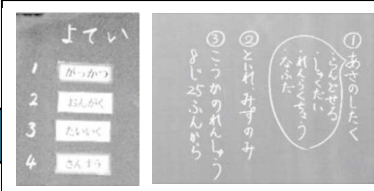 よてい
1 がっかつ
2 おんがく
3 たいいく
4 さんすう
① あさのしたく
・らんどせる
・しゅくだい
・れんらくちょう
・なふだ
② といれ、みずのみ
③ こっかのれんしゅう
8じ25ふんから